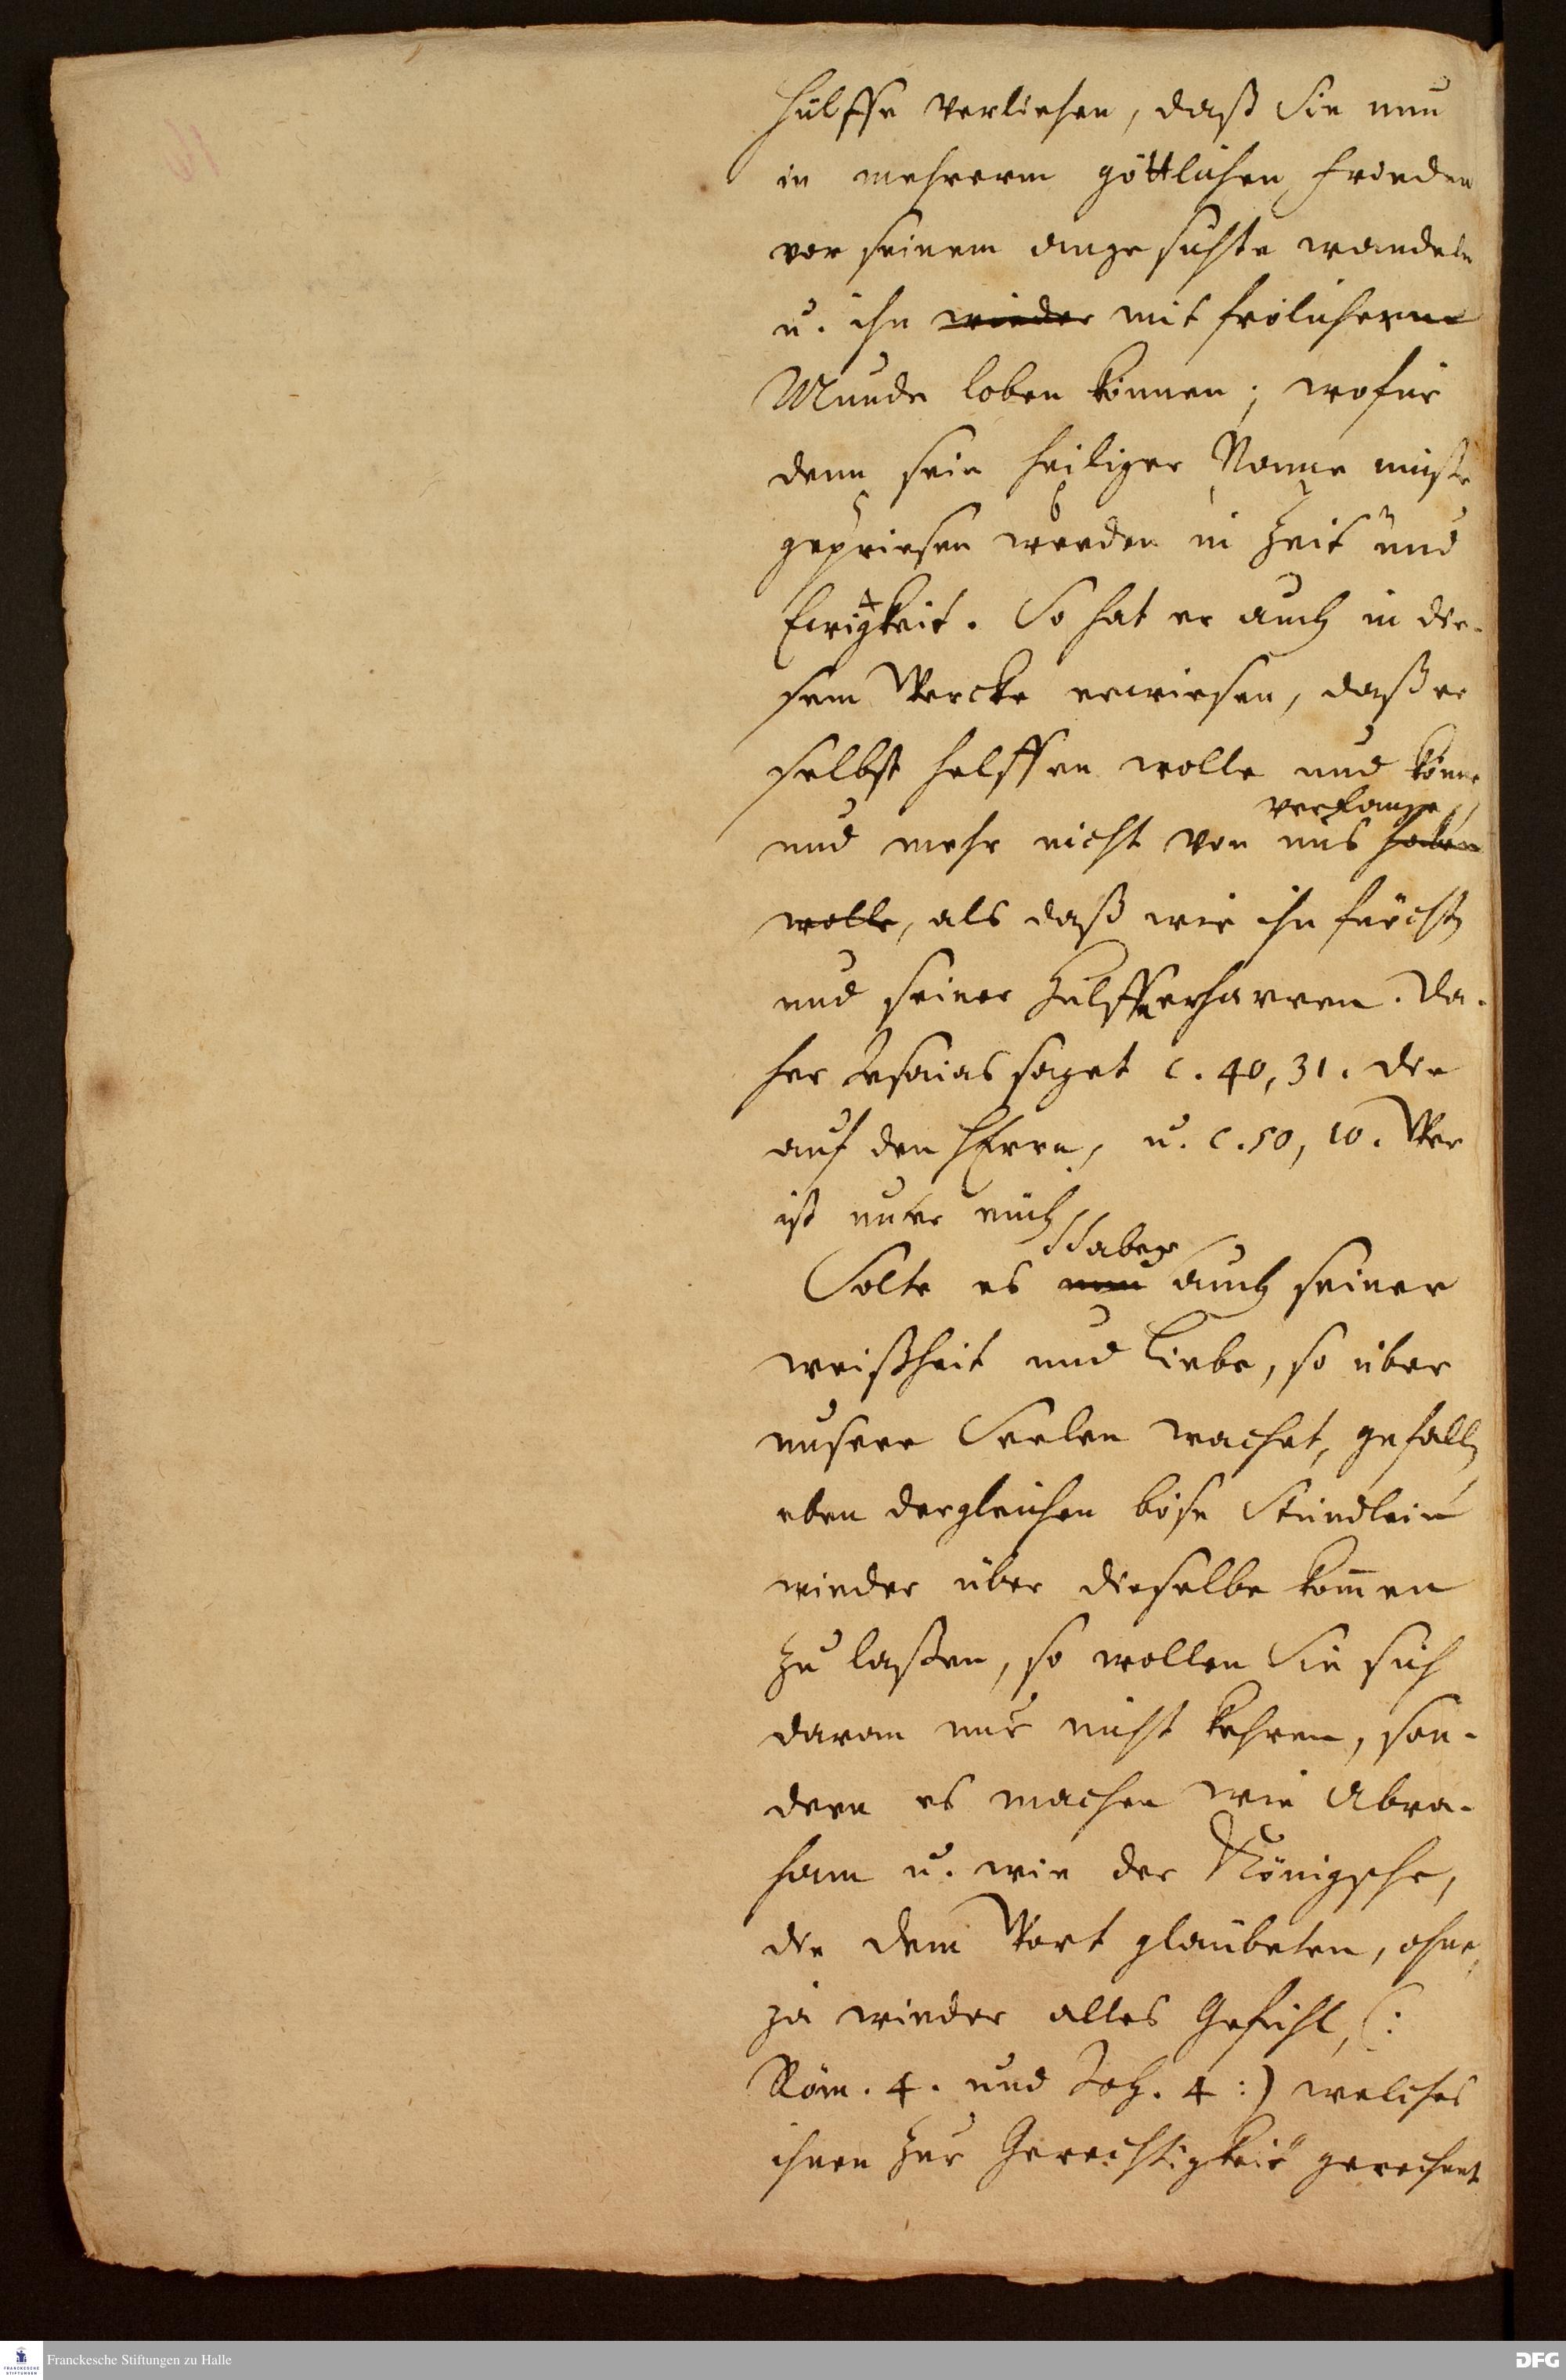 hülffe verliehen, daß Sie nun
in mehrerm göttlichen frieden
vor seinem angesichte wandeln
u. ihn wieder mit frölicherm
Munde loben können; wofür
denn sein heiliger Name müste
gepriesen werden in Zeit und
Ewigkeit. So hat er auch in die-
sem Wercke erwiesen, daß er
selbst helffen wolle und könne,
verlange,
und mehr nicht von uns haben
wolle, als daß wir ihn fürchten
und seiner Hülffe erharren. Da-
her Esaias saget c. 40, 31. die
auf den HErrn, u. c. 50, 10. Wer
ist unter euch
aber
Solte es nun auch seiner
weißheit und Liebe, so über
unsere Seelen wachet, gefallen
eben dergleichen böse Stündlein
wieder über dieselbe kom̄en
zu laßen, so wollen Sie sich
daran nur nicht kehren, son-
dern es machen wie Abra-
ham u. wie der Königsche,
die dem Wort glaubeten, ohne,
ja wieder alles Gefühl, (:
Röm. 4. und Joh. 4 :) welches
ihnen zur Gerechtigkeit gerechnet
Franckesche Stiftungen zu Halle
DFG